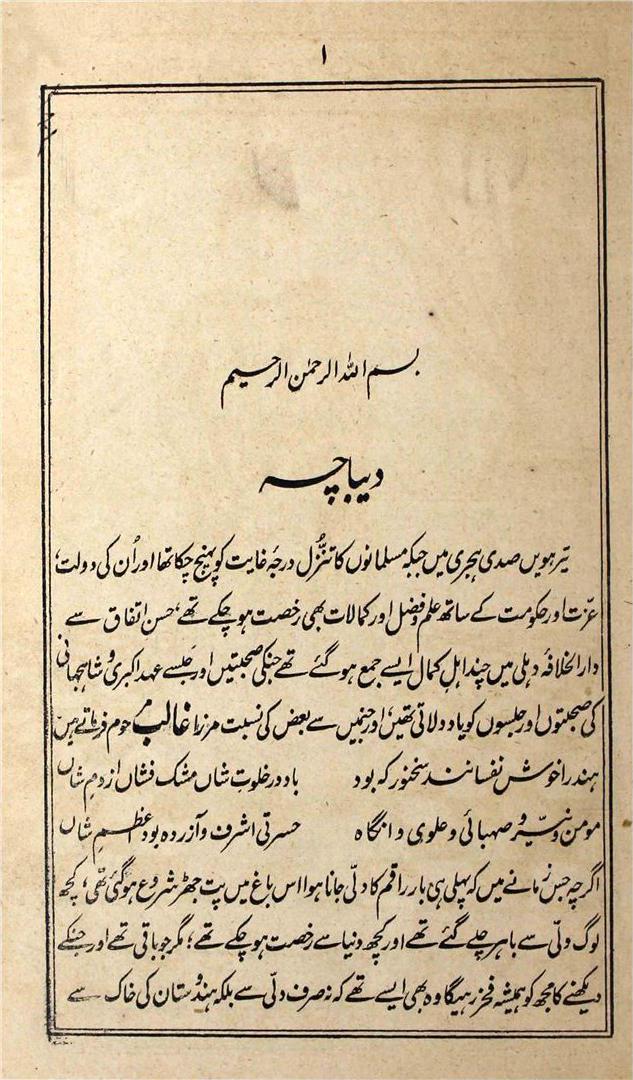 ۱
بسم اللہ الرحمٰن الرحیم
دیباچہ
تیرہویں صدی ہجری میں جبکہ مسلمانوں کا تنزُّل درجۂ غایت کو پہنچ چکا تھا اور اُن کی دولت،
عزّت اور حکومت کے ساتھ علم و فضل اور کمالات بھی رخصت ہو چکے تھے، حسن اتفاق سے
دار الخلافۂ دہلی میں چند اہل کمال ایسے جمع ہو گئے تھے جنکی صحبتیں اور جلسے عہد اکبری و شاہجہانی
کی صحبتوں اور جلسوں کو یاد دلاتی تھیں، اور جنمیں سے بعض کی نسبت مرزا غالب مرحوم فرماتے ہیں
ہند را خوش نفسانند سخنور کہ بود باد در خلوت شاں مشک فشاں از دمِ شاں
مومن و نیّر و صہبائی و علوی وانگاہ حسرتی اشرف و آزردہ بود اعظمِ شاں
اگرچہ جس زمانے میں کہ پہلی ہی بار راقم کا دلّی جانا ہوا اس باغ میں پت جھڑ شروع ہو گئی تھی؛ کچھ
لوگ دلّی سے باہر چلے گئے تھے اور کچھ دنیا سے رخصت ہو چکے تھے؛ مگر جو باقی تھے اور جنکے
دیکھنے کا مجھ کو ہمیشہ فخر رہیگا وہ بھی ایسے تھے کہ نہ صرف دلّی سے بلکہ ہندوستان کی خاک سے